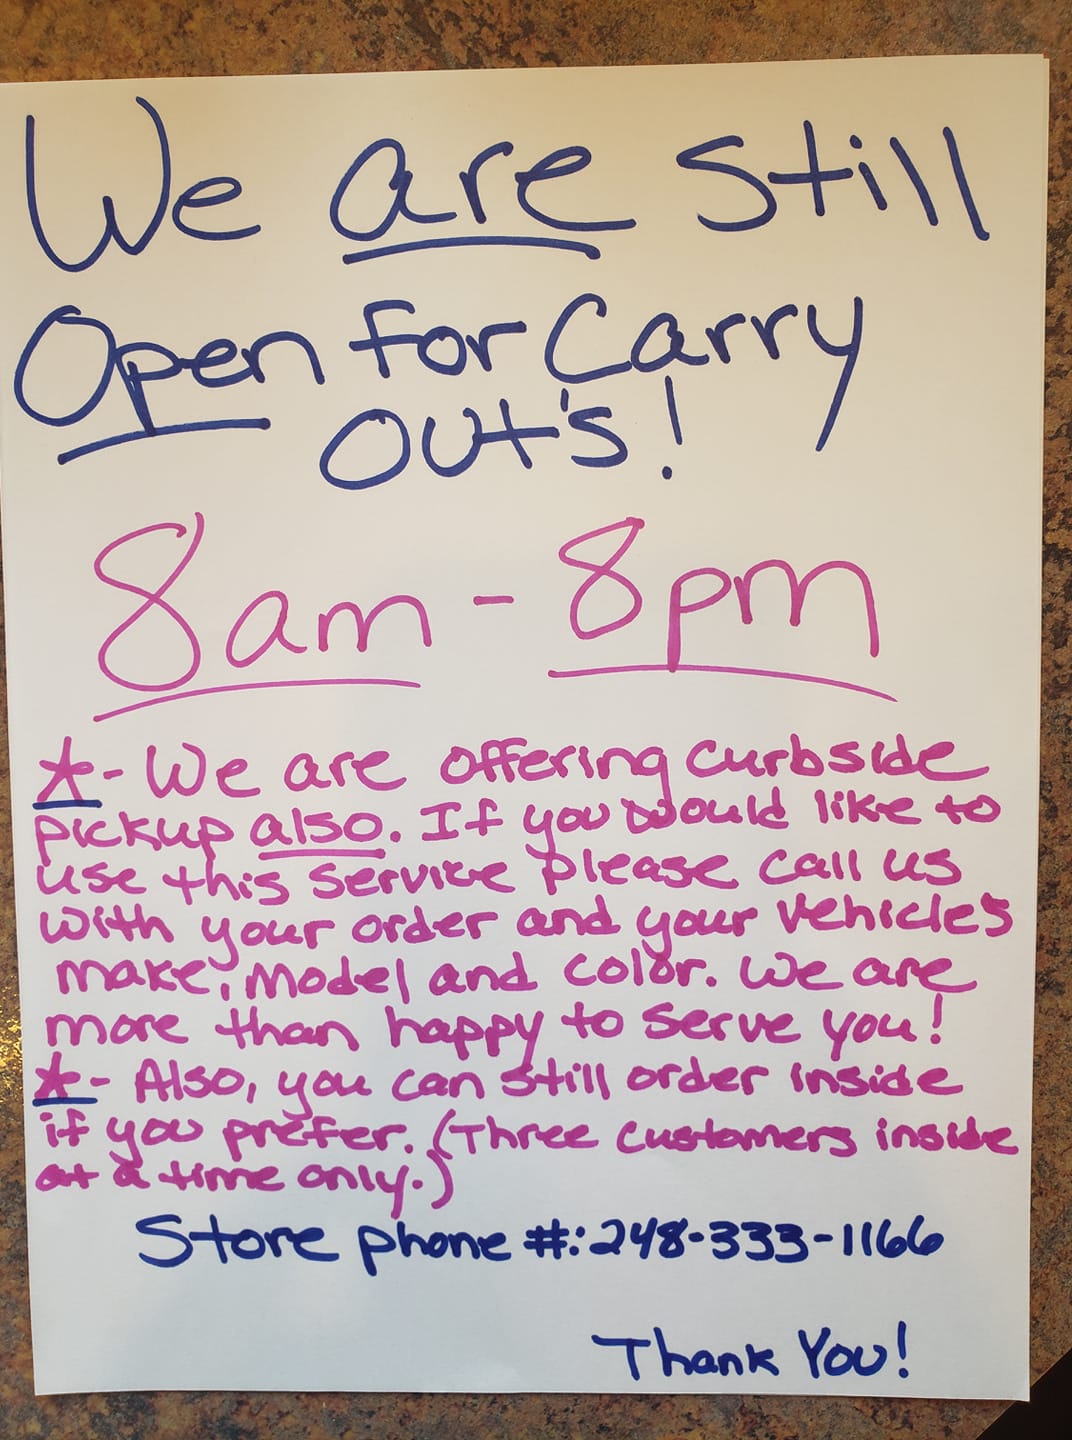 We are still
Open for Carry
Out's!
8am - 8pm
*- We are offering curbside
pickup also. If you would like to
use this service please call us
with your order and your vehicles
make, model and color. We are
more than happy to serve you!
*- Also, you can still order inside
if you prefer. (Three customers inside
at a time only.)
Store phone #: 248-333-1166
Thank You!